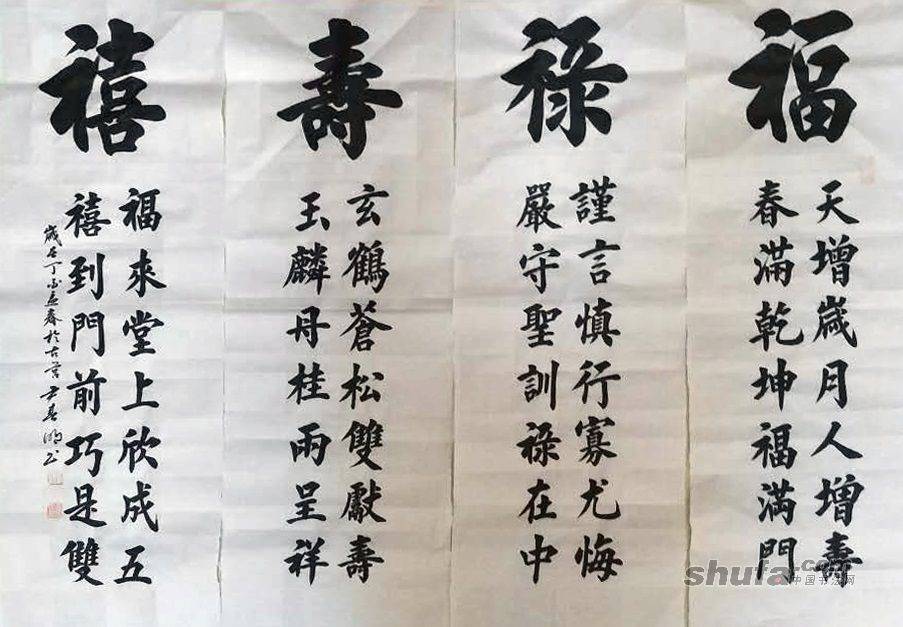 福
天增歲月人增壽
春滿乾坤福滿門
祿
謹言慎行寡尤悔
嚴守聖訓祿在中
壽
玄鶴蒼松雙獻壽
玉麟丹桂兩呈祥
禧
福來堂上欣成五
禧到門前巧是雙
歲在丁酉孟春於古
shufa.com
中国书法网